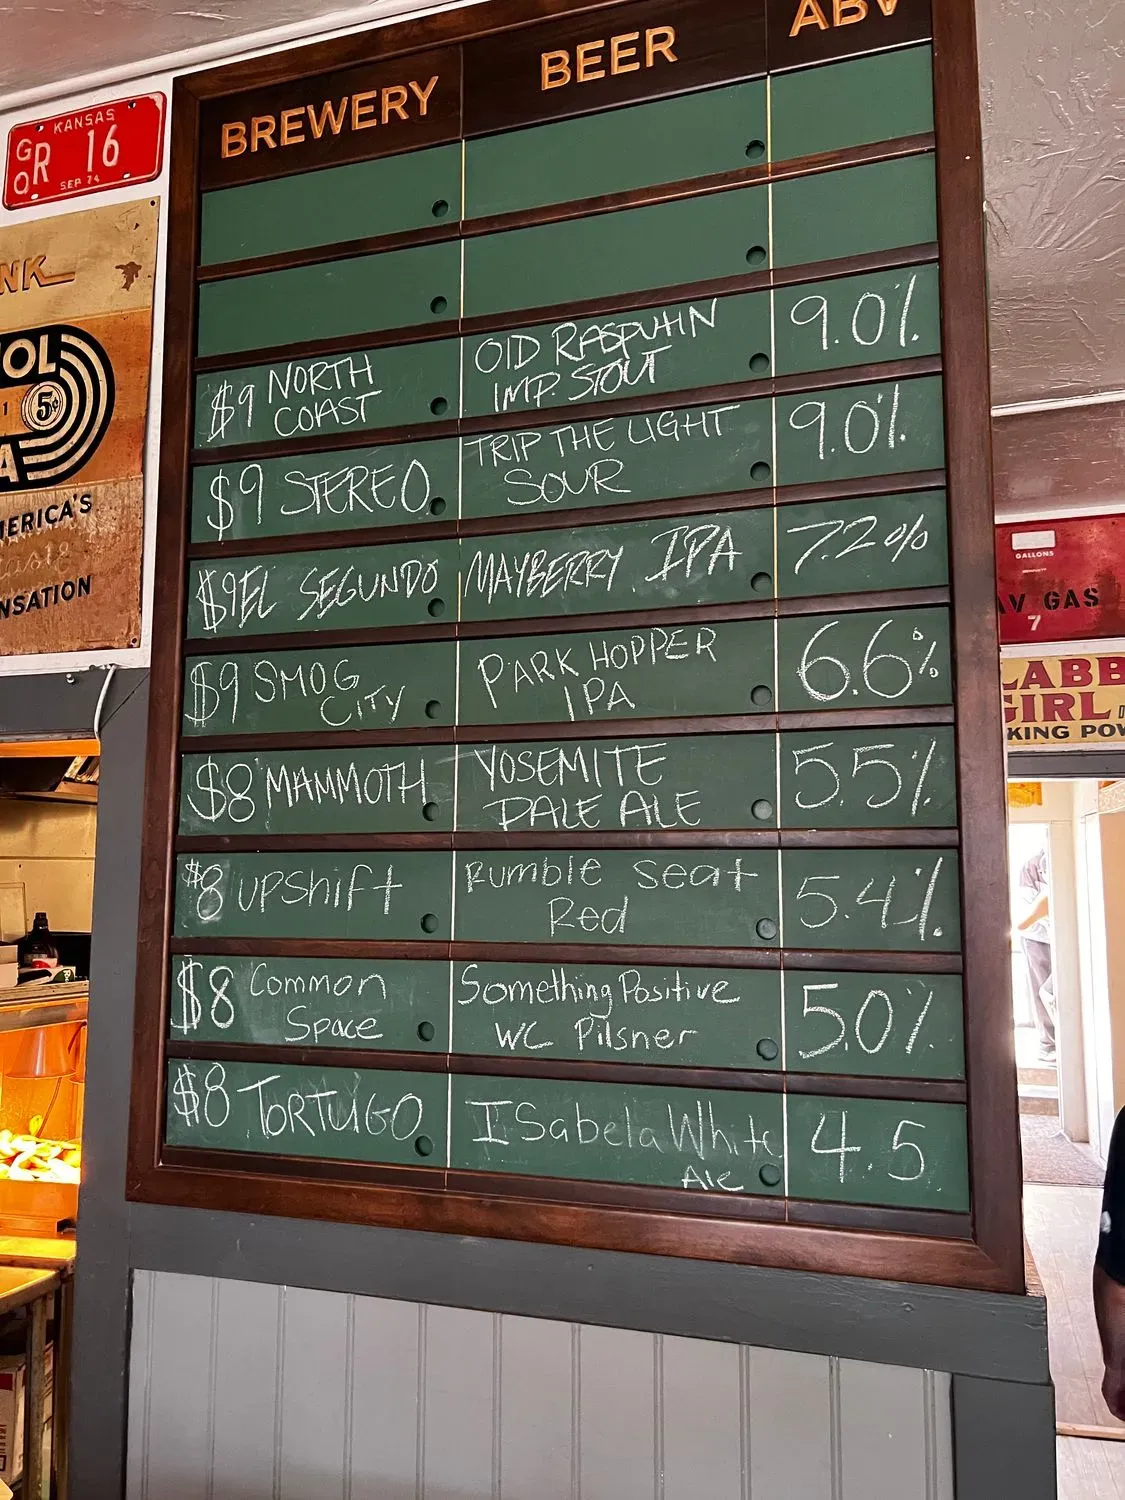 BREWERY BEER ABV
KANSAS
GO R 16
SEP 74
$9 NORTH COAST OLD RASPUHIN IMP. STOUT 9.0%
$9 STEREO TRIP THE LIGHT SOUR 9.0%
$9 EL SEGUNDO MAYBERRY IPA 7.2%
$9 SMOG CITY PARK HOPPER IPA 6.6%
$8 MAMMOTH YOSEMITE PALE ALE 5.5%
$8 UPSHIFT Rumble Seat Red 5.4%
$8 Common Space Something Positive WC Pilsner 5.0%
$8 TORTUGO ISabela White Ale 4.5
NK
OL
1 5¢
A
MERICA'S
NSATION
GALLONS
AV GAS
7
LABB
GIRL
KING POW